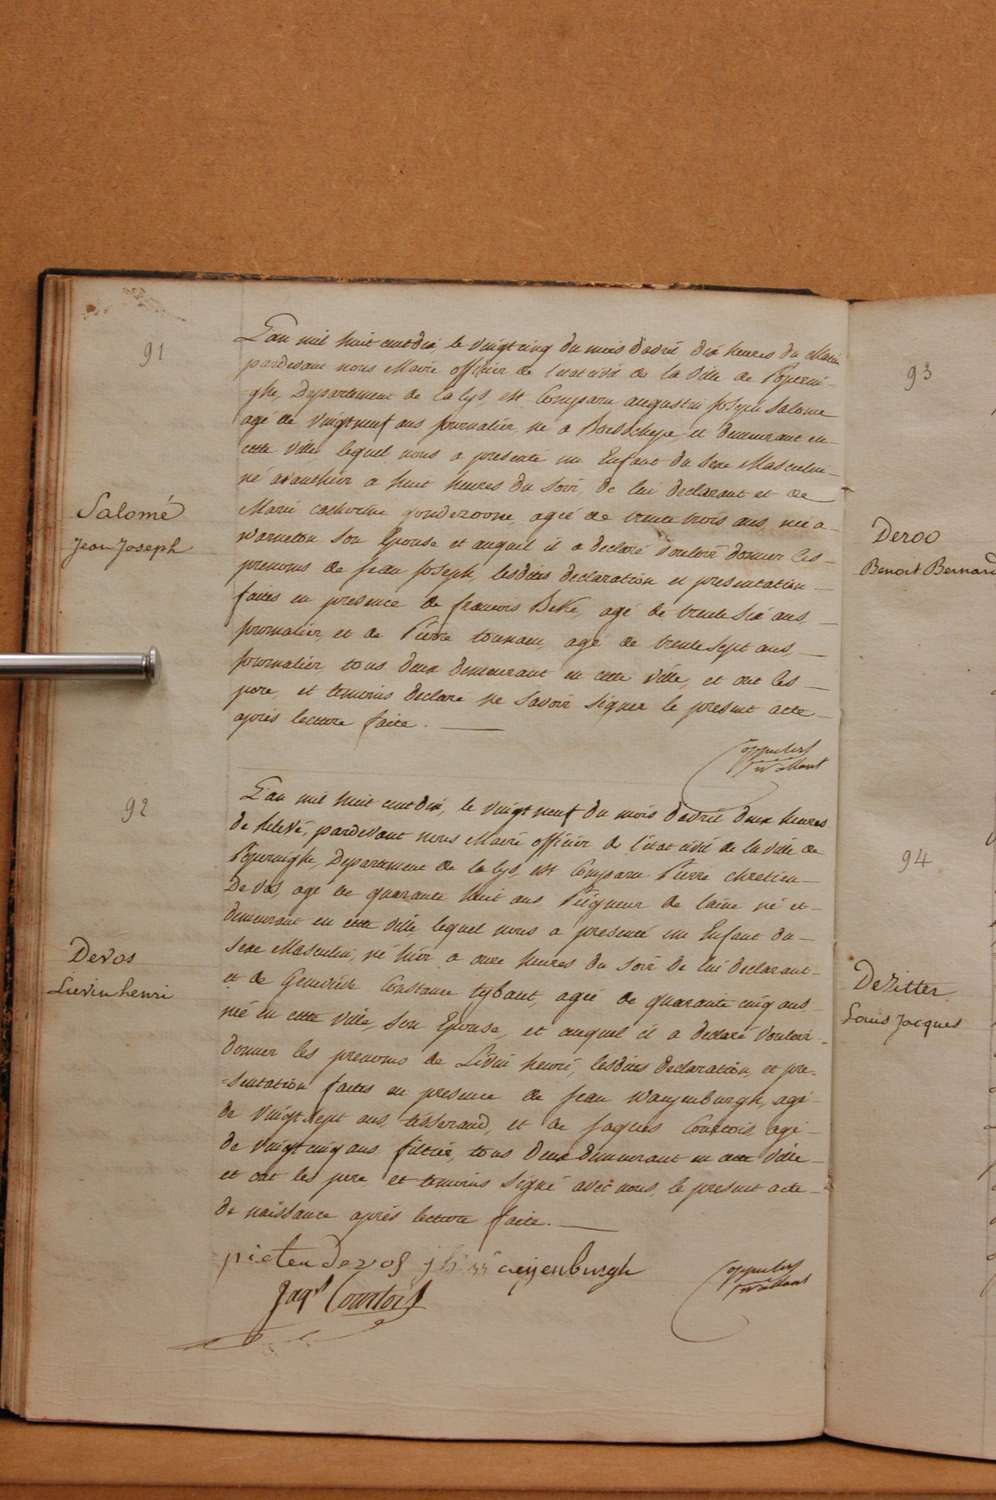 91
Salomé
Jean Joseph
L'an mil huit cent dix le vingt cinq du mois d'avril dix heures du Matin
pardevant nous Maire officier de l'etat civil de la ville de Poperin-
ghe, Departement de la lys, est Comparu augustin Joseph Salome
agé de vingt neuf ans journalier né a Boesschepe et demeurant en
cette ville lequel nous a presenté un Enfant du Sexe Masculin
né avanthier a huit heures du Soir de lui declarant et de
Marie catherine gonderoone, agée de trente trois ans, née a
warneton Son Epouse et auquel il a declaré vouloir donner les
prenoms de Jean Joseph, lesdites declaration et presentation
faites en presence de francois Beke, agé de trente Six ans
journalier, et de Pierre tournaeu, agé de trente sept ans
journalier, tous deux demeurant en cette ville, et ont les
pere, et temoins declaré ne Savoir signer le present acte
après lecture faite.
92
Devos
Lievin henri
L'an mil huit cent dix, le vingt neuf du mois d'avril deux heures
de relevé, pardevant nous Maire officier de l'etat civil de la ville de
Poperinghe, Departement de la lys, est Comparu Pierre chretien
De vos, agé de quarante huit ans Peigneur de laine né et
demeurant en cette ville lequel nous a presenté un Enfant du
Sexe Masculin, né hier a onze heures du Soir de lui declarant
et de Genevieve Constance tybaut, agée de quarante cinq ans
née en cette ville, Son Epouse, et auquel il a declaré vouloir
donner les prenoms de Liévin henri, lesdites declaration, et pre-
-sentation faites en presence de Jean wanjenburgh, agé
de vingt sept ans, tisserand, et de Jaques Courtois agé
de vingt cinq ans filtier, tous deux demeurant en cette ville
et ont les pere et temoins signé avec nous, le present acte
de naissance après lecture faite.
pieter devos
Jaqs Courtois
93
Deroo
Benoit Bernard
94
Dezitter
Louis Jacques